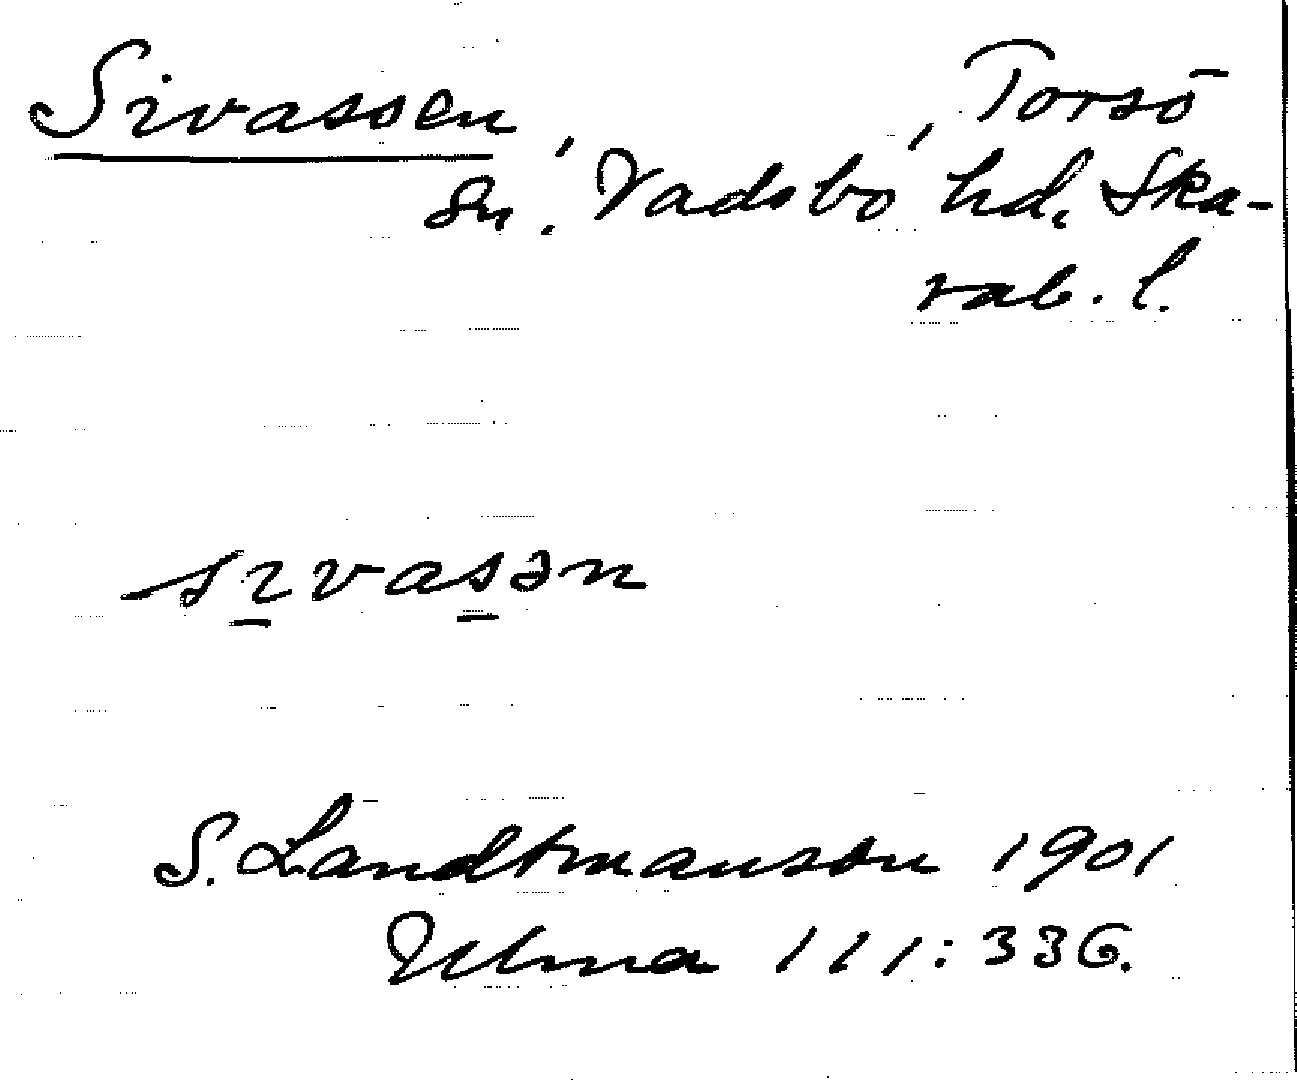 Sivassen, Torsö
sn, Vadsbo hd, Ska-
rab. l.
sıvasən
S. Landtmanson 1901
Ulma 111:336.